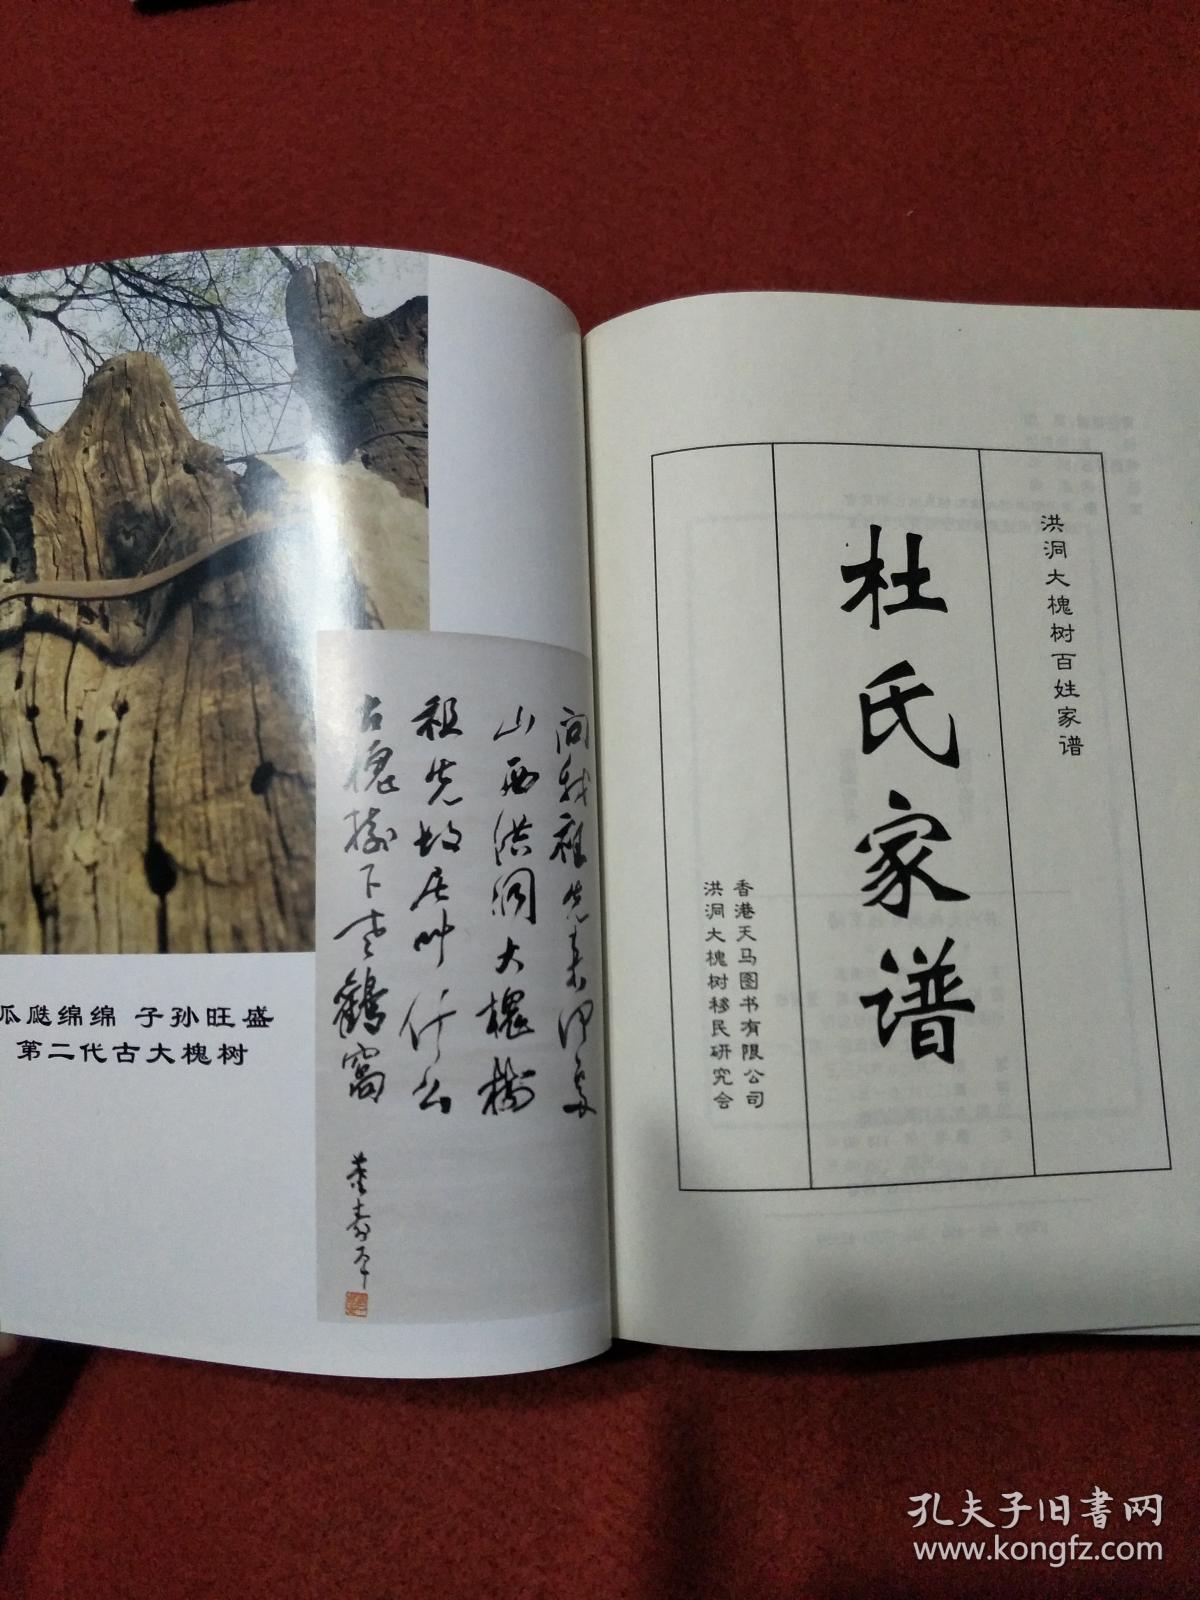 瓜瓞绵绵 子孙旺盛
第二代古大槐树
问我祖先来何处
山西洪洞大槐樹
祖先故居叫什么
古槐树下老鹳窩
董寿平
洪洞大槐树百姓家谱
杜氏家谱
香港天马图书有限公司
洪洞大槐树移民研究会
孔夫子旧书网
www.kongfz.com